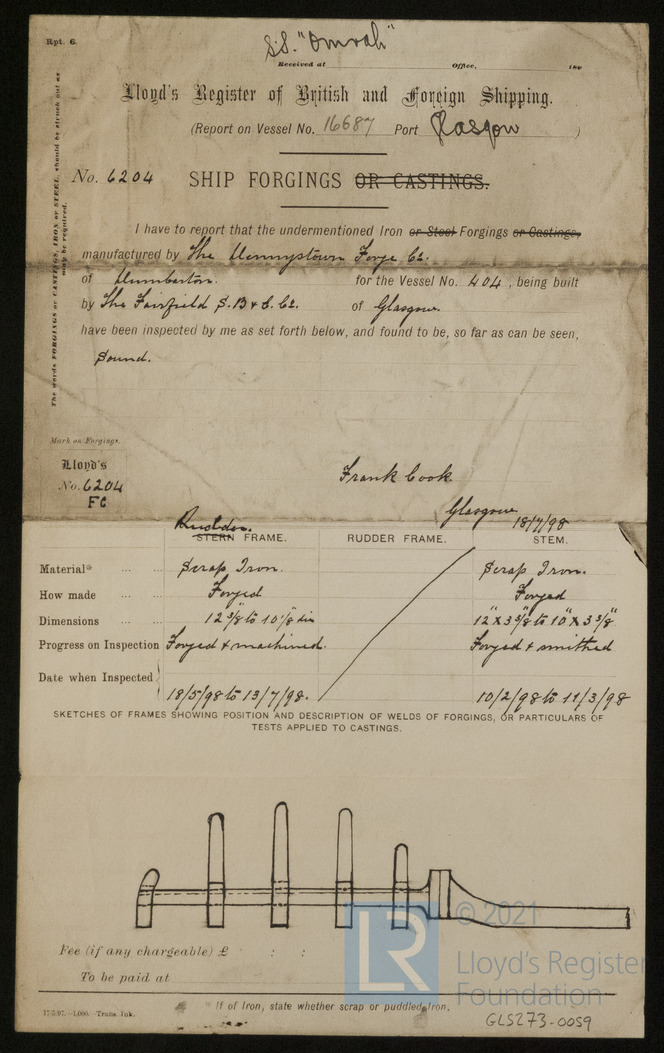 Rpt. 6.
S.S. "Omrah"
Received at Office, 189
Lloyd's Register of British and Foreign Shipping.
(Report on Vessel No. 16687 Port Glasgow )
No. 6204 SHIP FORGINGS OR CASTINGS.
The words FORGINGS or CASTINGS, IRON or STEEL, should be struck out as may be required.
I have to report that the undermentioned Iron or Steel Forgings or Castings,
manufactured by The Dennystown Forge Co.
of Dumbarton. for the Vessel No. 404, being built
by The Fairfield S.B & E. Co. of Glasgow.
have been inspected by me as set forth below, and found to be, so far as can be seen,
Sound.
Mark on Forgings.
Lloyd's
No. 6204
FC
Frank Cook.
Glasgow 18/7/98
Rudder.
STERN FRAME. RUDDER FRAME. STEM.
Material* ... ... Scrap Iron. Scrap Iron.
How made ... ... Forged Forged
Dimensions ... ... 12 3/8 to 10 1/8 dia 12" x 3 5/8 to 10" x 3 5/8"
Progress on Inspection Forged & machined. Forged & smithed
Date when Inspected 18/5/98 to 13/7/98. 10/2/98 to 11/3/98
SKETCHES OF FRAMES SHOWING POSITION AND DESCRIPTION OF WELDS OF FORGINGS, OR PARTICULARS OF
TESTS APPLIED TO CASTINGS.
Fee (if any chargeable) £ : :
To be paid at
* If of Iron, state whether scrap or puddled Iron.
17/5/97.—1,000.—Trans. Ink.
GLS273-0059
LR
© 2021
Lloyd's Register
Foundation